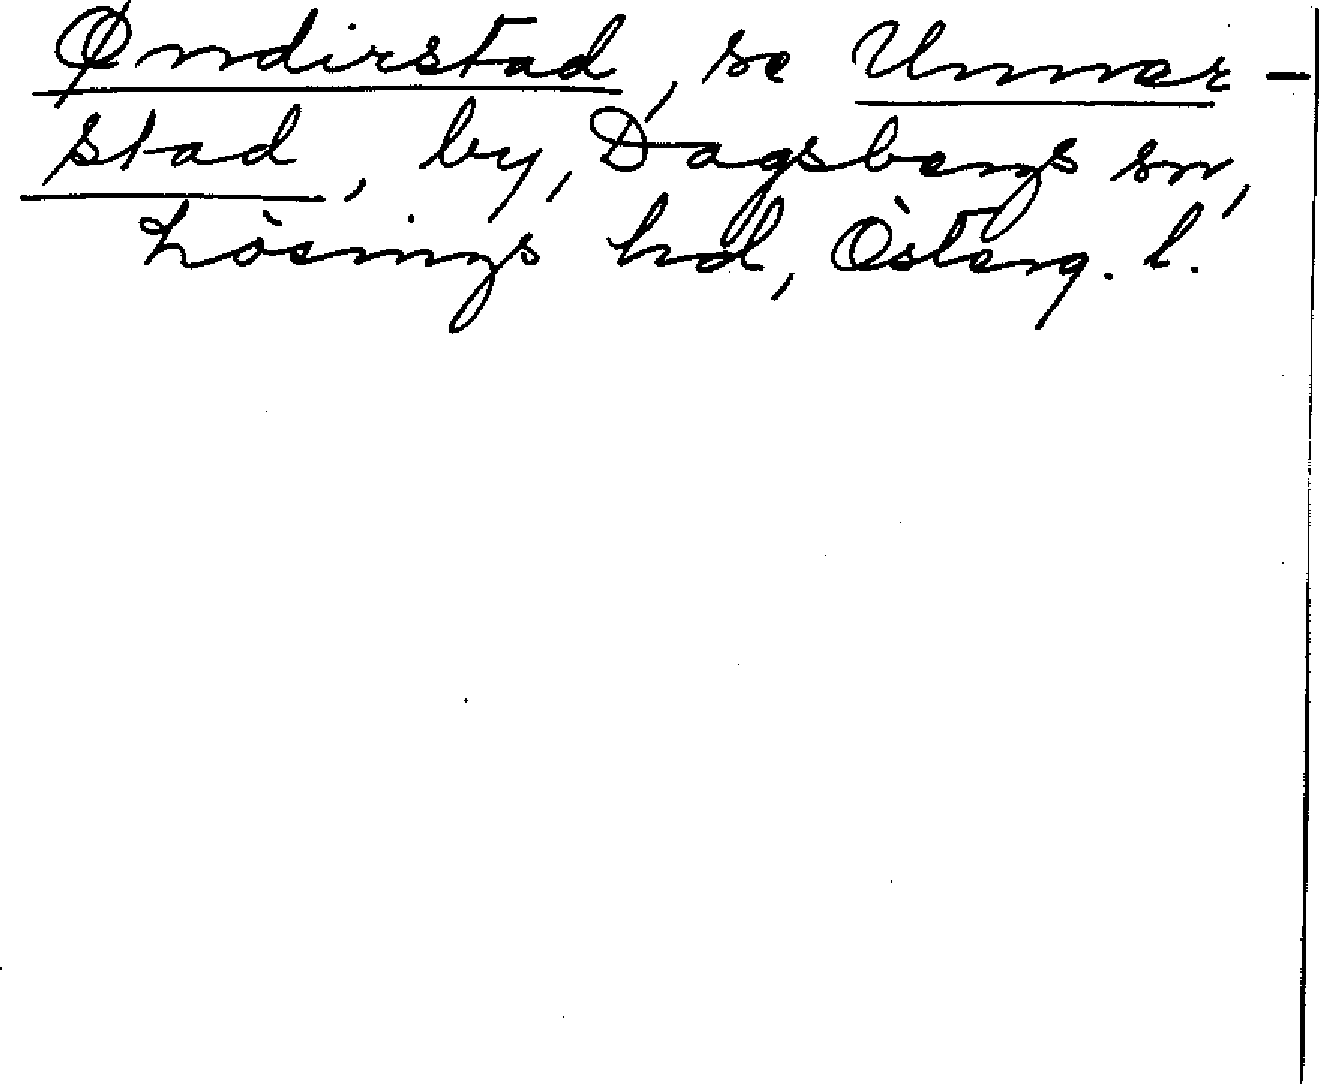 Øndirstad, se Unner-
stad, by, Dagsbergs sn,
Lösings hd, Österg. l.